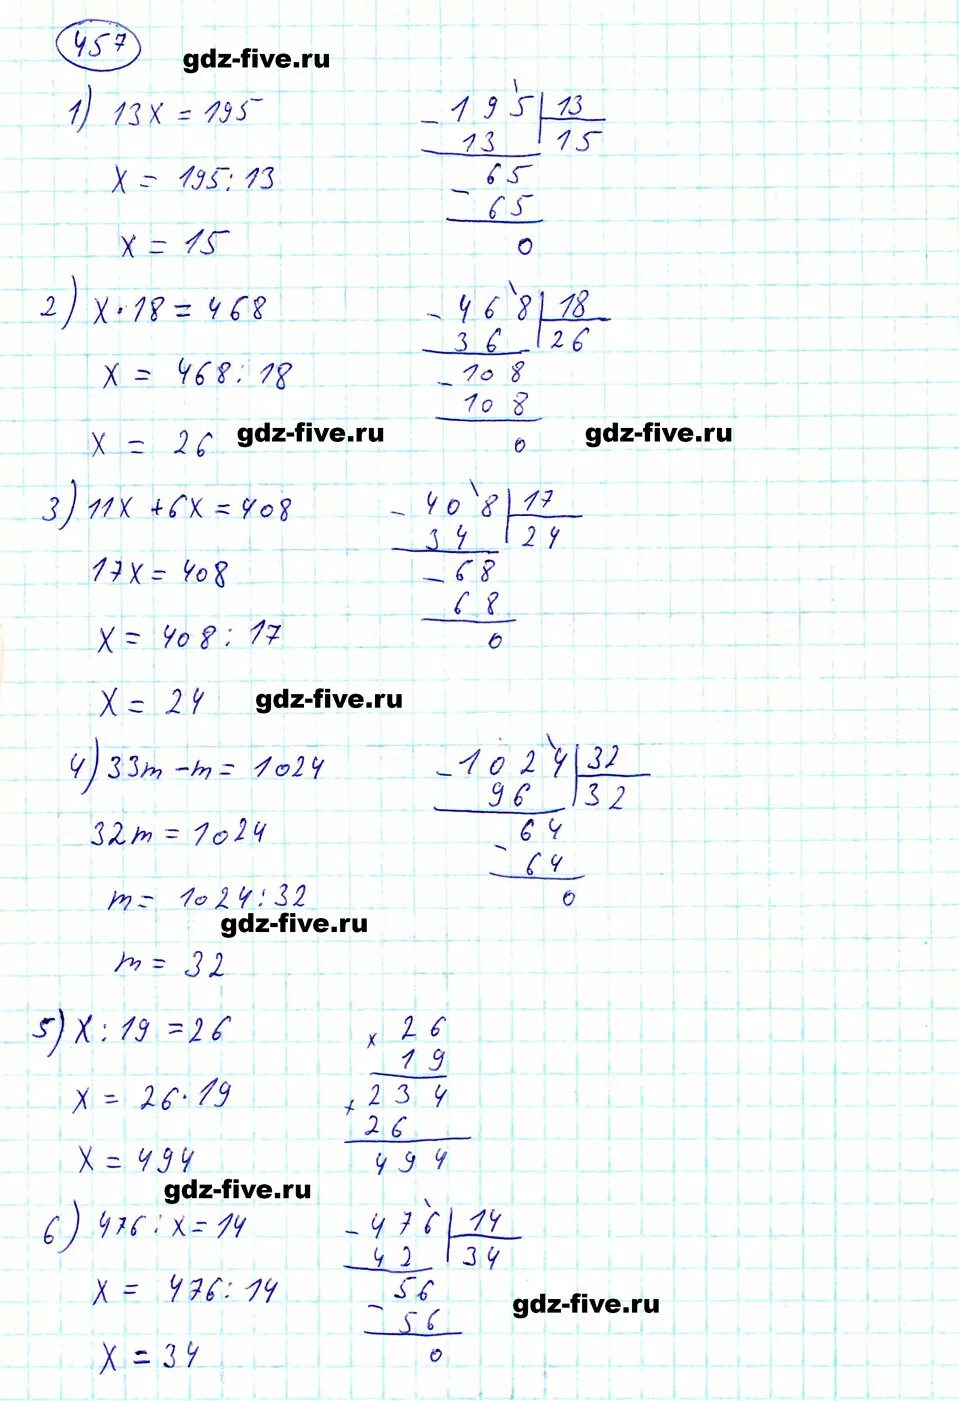 457
gdz-five.ru
1) 13x = 195
x = 195 : 13
x = 15
- 195 | 13
13 15
- 65
65
0
2) x · 18 = 468
x = 468 : 18
x = 26
gdz-five.ru
- 468 | 18
36 26
- 108
108
0
gdz-five.ru
3) 11x + 6x = 408
17x = 408
x = 408 : 17
x = 24
gdz-five.ru
- 408 | 17
34 24
- 68
68
0
4) 33m - m = 1024
32m = 1024
m = 1024 : 32
gdz-five.ru
m = 32
- 1024 | 32
96 32
- 64
64
0
5) x : 19 = 26
x = 26 · 19
x = 494
gdz-five.ru
x 26
19
+ 234
26
494
6) 476 : x = 14
x = 476 : 14
x = 34
- 476 | 14
42 34
- 56
56
0
gdz-five.ru